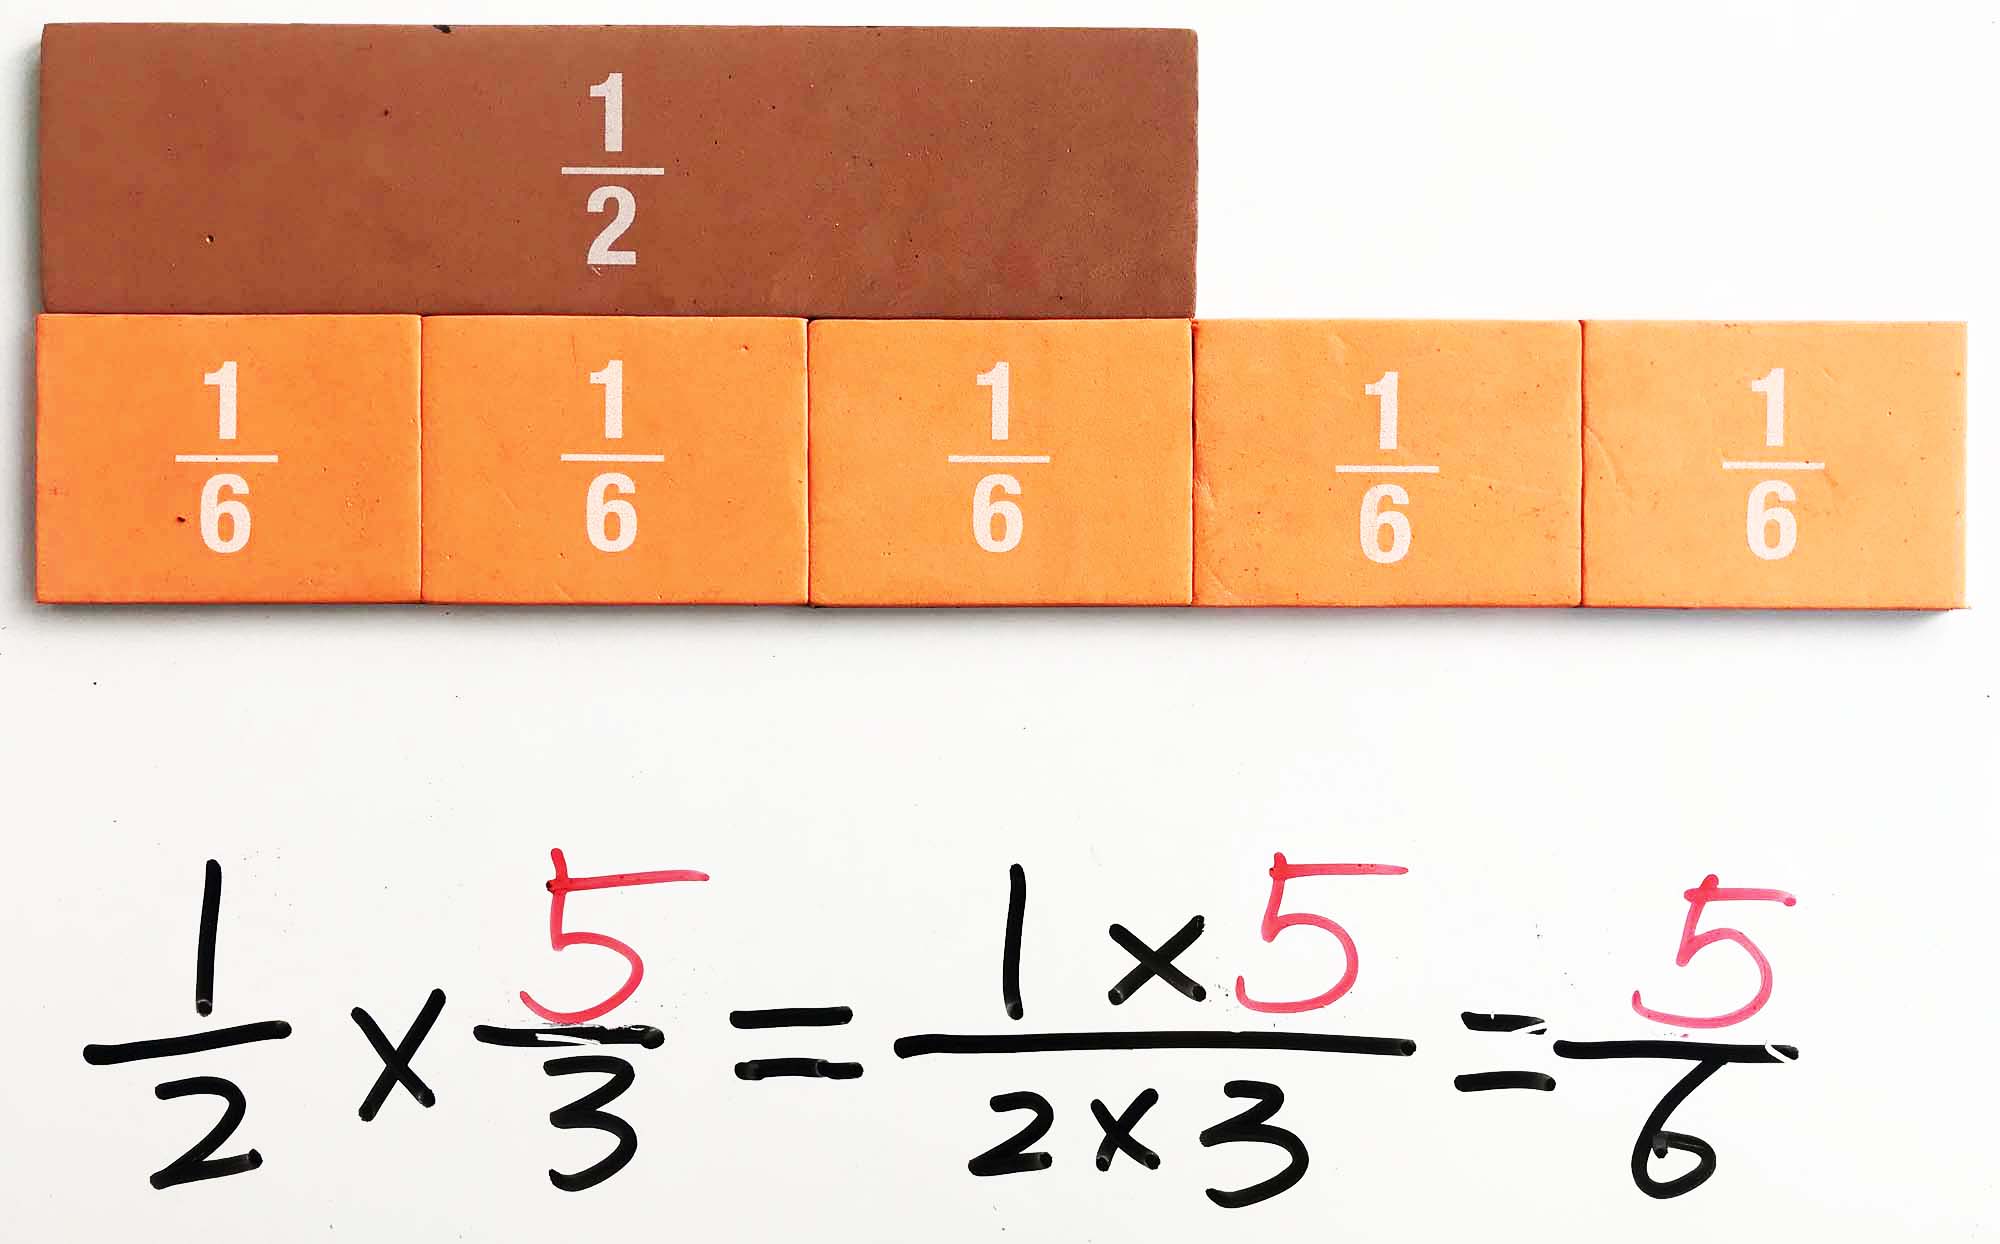 1/2
1/6 1/6 1/6 1/6 1/6
1/2 × 5/3 = 1×5/2×3 = 5/6